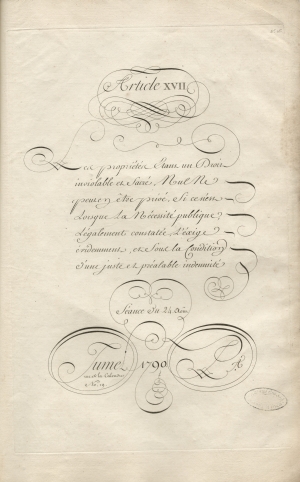 Article XVII
Les propriétés Étant un Droit
inviolable et Sacré, Nul Ne
peut en être privé, Si ce n'est
Lorsque La Nécessité publique,
Légalement constatée L'exige
évidemment, et Sous la Condition
d'une juste et préalable indemnité
Séance du 24 Aoû
Fumel
1790